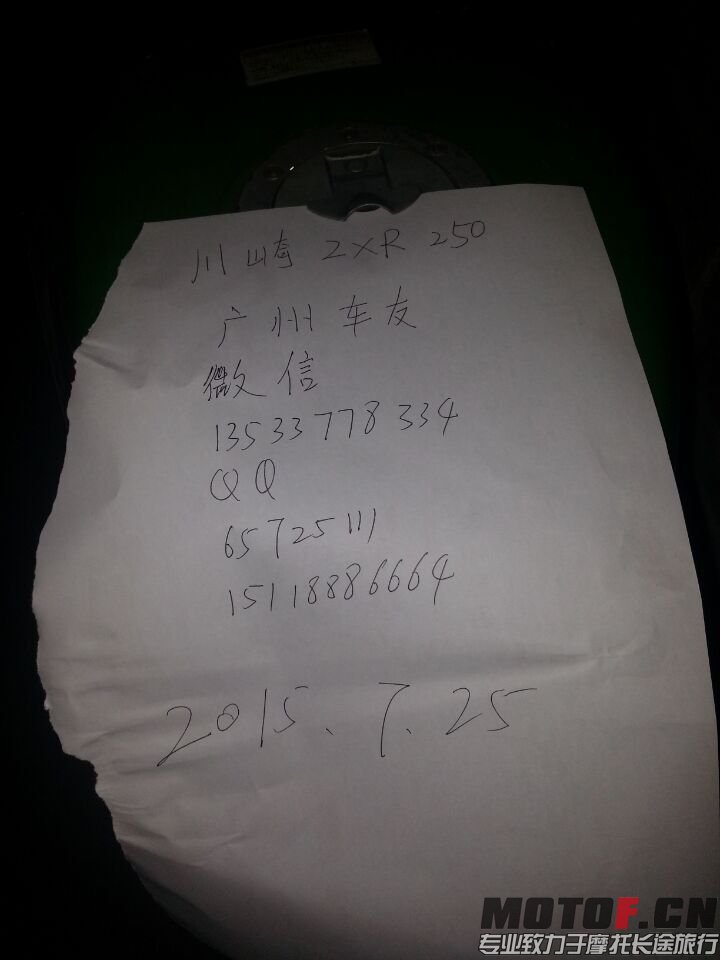 川崎 ZXR 250
广州车友
微信
13533778334
QQ
65725111
15118886664
2015.7.25
MOTOF.CN
专业致力于摩托长途旅行